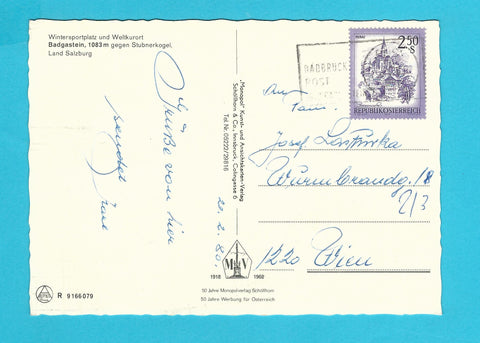 Wintersportplatz und Weltkurort
Badgastein, 1083 m gegen Stubnerkogel,
Land Salzburg
Grüße von hier
sendet
„Monopol" Kunst- und Ansichtskarten-Verlag
Schöllhorn & Co., Innsbruck, Colingasse 6
Tel. Nr. 05222/29816
2.2.80.
2.50
S
REPUBLIK ÖSTERREICH
BADBRUCK
POST
An
Fam.
Josef
1220 Wien
2/3
M V
1918 1968
50 Jahre Monopolverlag Schöllhorn
50 Jahre Werbung für Österreich
R 9166079